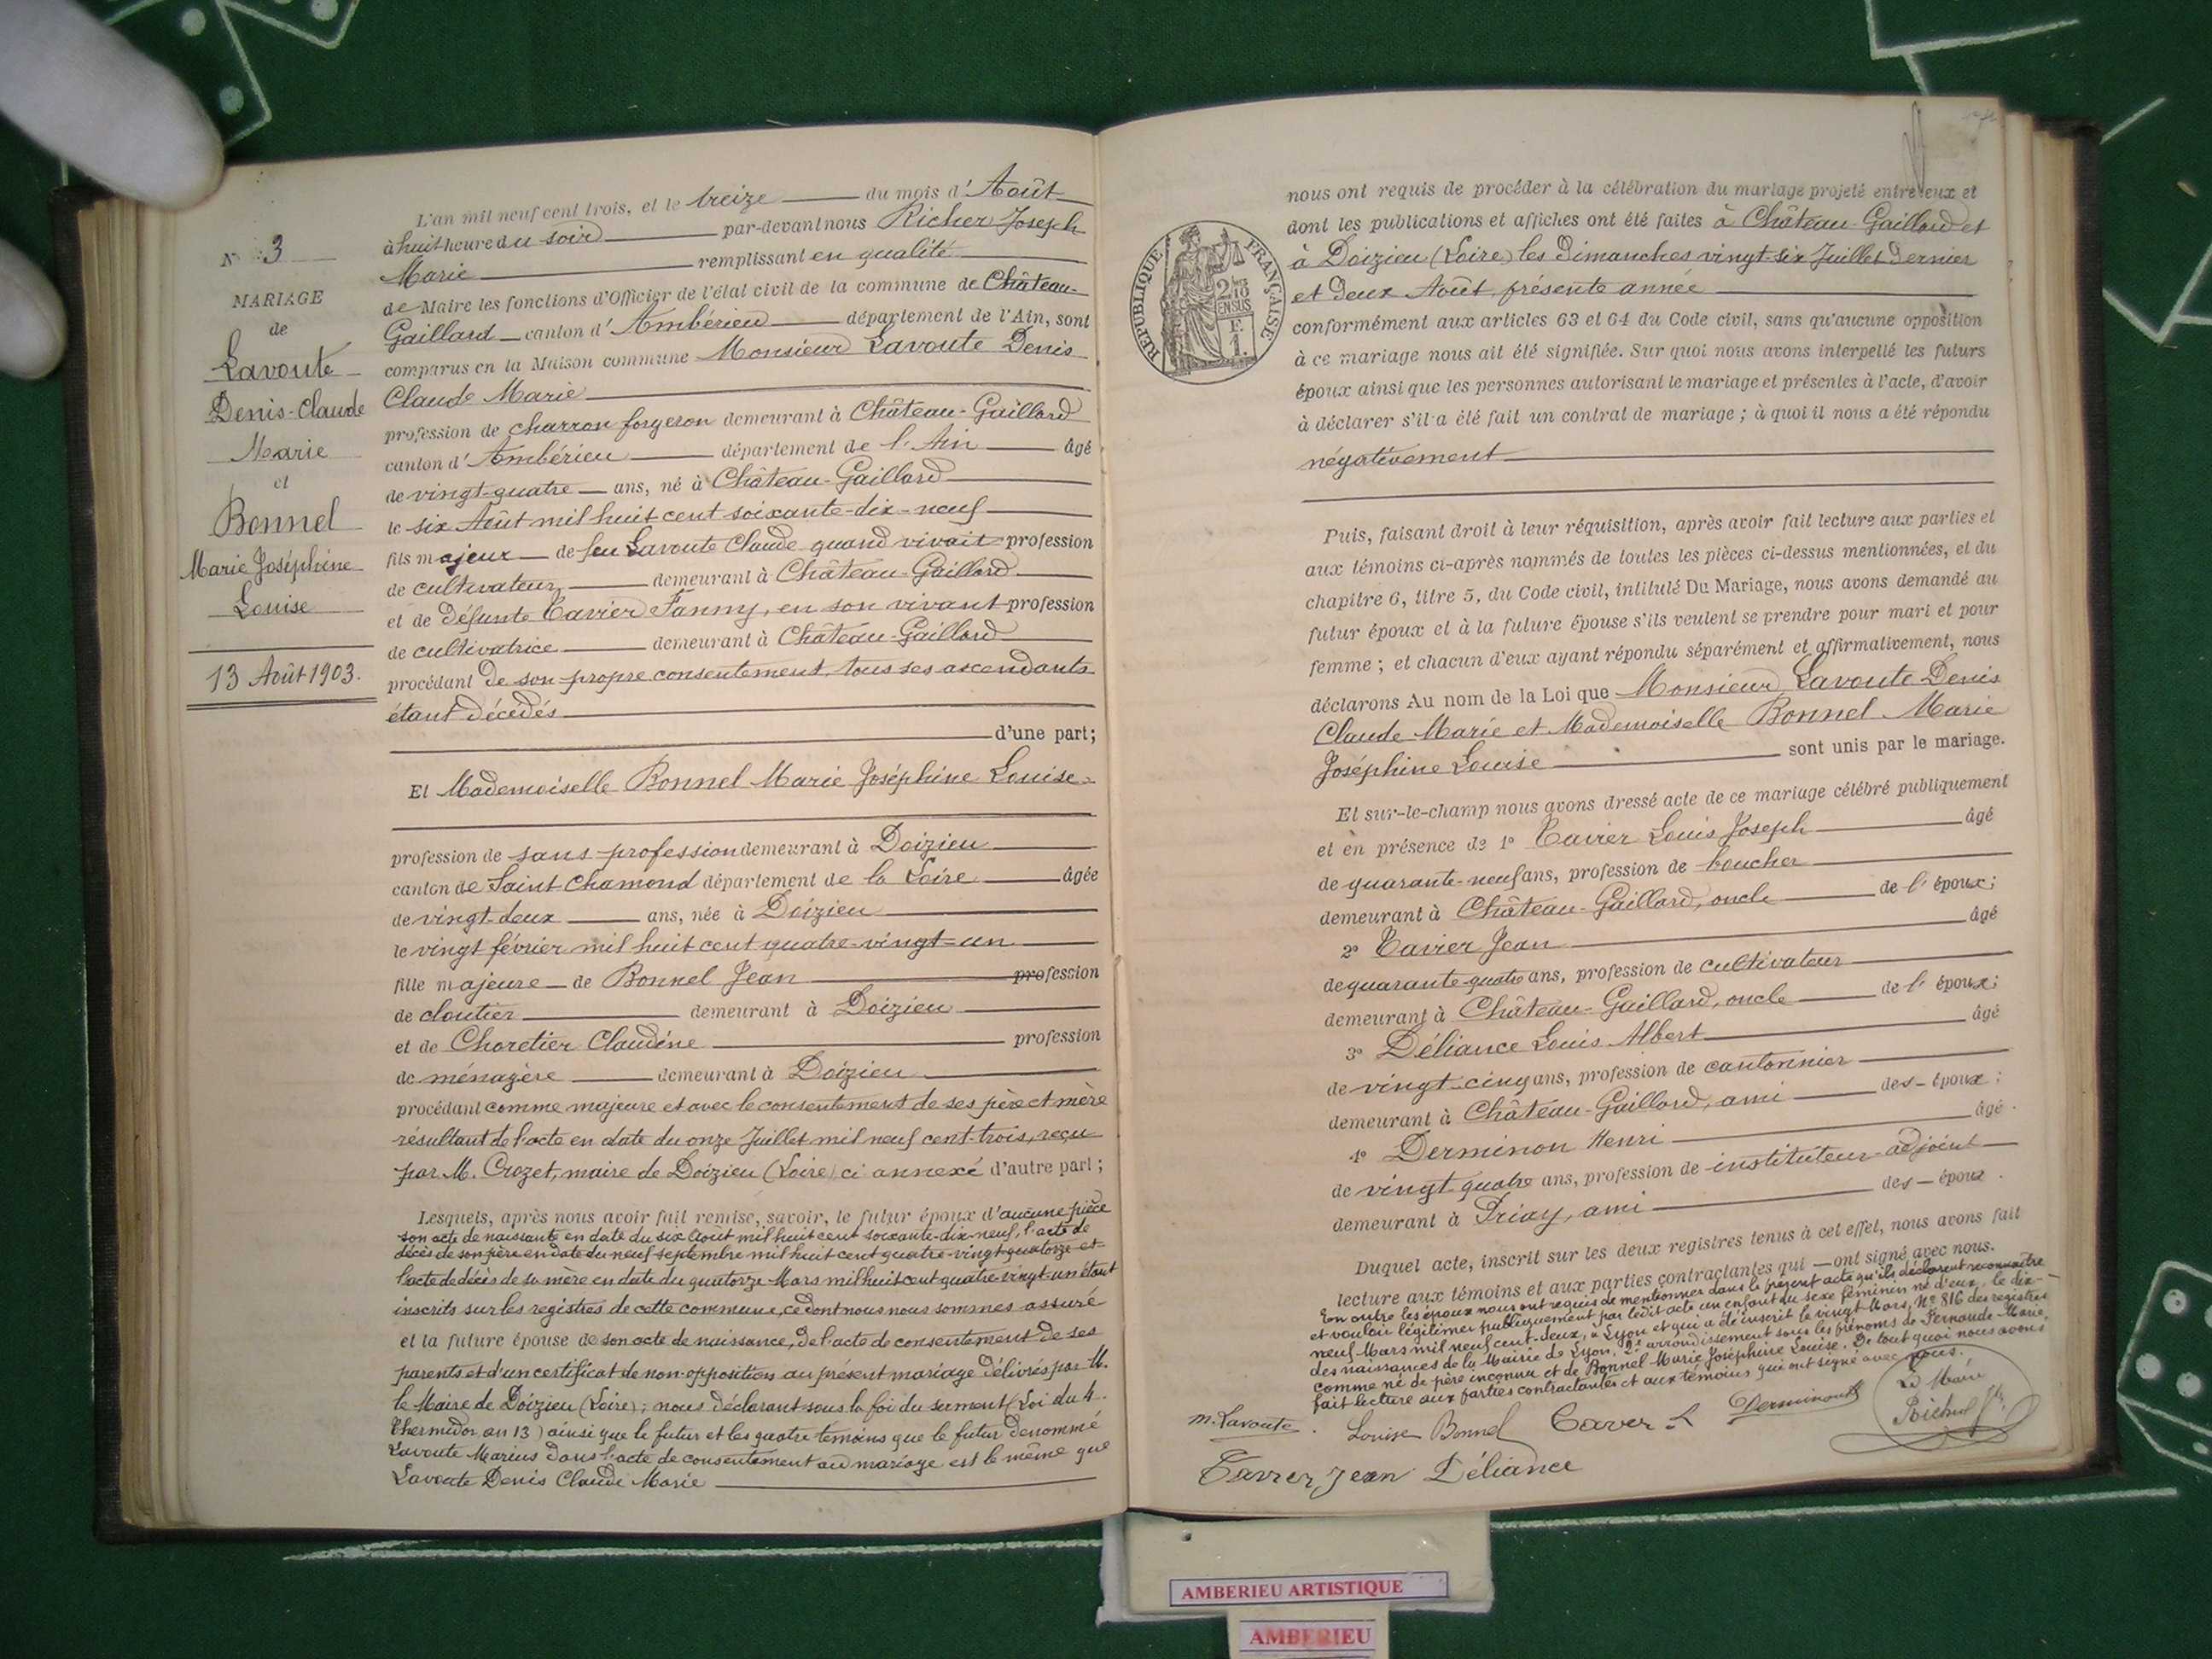 N° 3
MARIAGE
de
Lavoute
Denis-Claude
Marie
et
Bonnel
Marie Joséphine
Louise
13 Août 1903.
L'an mil neuf cent trois, et le treize du mois d'Août
à huit heure du soir par-devant nous Richer Joseph
Marie remplissant en qualité
de Maire les fonctions d'Officier de l'état civil de la commune de Château-
Gaillard canton d'Ambérieu département de l'Ain, sont
comparus en la Maison commune Monsieur Lavoute Denis
Claude Marie
profession de charron forgeron demeurant à Château-Gaillard
canton d'Ambérieu département de l'Ain âgé
de vingt-quatre ans, né à Château-Gaillard
le six Août mil huit cent soixante-dix-neuf
fils majeur de feu Lavoute Claude quand vivait profession
de cultivateur demeurant à Château-Gaillard
et de défunte Tavier Fanny, en son vivant profession
de cultivatrice demeurant à Château-Gaillard
procédant de son propre consentement, tous ses ascendants
étant décédés
d'une part;
Et Mademoiselle Bonnel Marie Joséphine Louise
profession de sans profession demeurant à Doizieu
canton de Saint Chamond département de la Loire âgée
de vingt-deux ans, née à Doizieu
le vingt février mil huit cent quatre-vingt-un
fille majeure de Bonnel Jean profession
de cloutier demeurant à Doizieu
et de Choretier Claudine profession
de ménagère demeurant à Doizieu
procédant comme majeure et avec le consentement de ses père et mère
résultant de l'acte en date du onze Juillet mil neuf cent-trois, reçu
par M. Crozet, maire de Doizieu (Loire) ci annexé d'autre part;
Lesquels, après nous avoir fait remise, savoir, le futur époux d'aucune pièce
son acte de naissance en date du six Août mil huit cent soixante-dix-neuf, l'acte de
décès de son père en date du neuf septembre mil huit cent quatre-vingt-quatorze et
l'acte de décès de sa mère en date du quatorze Mars mil huit cent quatre-vingt-un étant
inscrits sur les registres de cette commune, ce dont nous nous sommes assuré
et la future épouse de son acte de naissance, de l'acte de consentement de ses
parents et d'un certificat de non-opposition au présent mariage délivrés par M.
le Maire de Doizieu (Loire); nous déclarant sous la foi du serment (Loi du 4
Thermidor an 13) ainsi que le futur et les quatre témoins que le futur dénommé
Lavoute Marius dans l'acte de consentement au mariage est le même que
Lavoute Denis Claude Marie
RÉPUBLIQUE FRANÇAISE
2/10
EN SUS
F.
1.
nous ont requis de procéder à la célébration du mariage projeté entre eux et
dont les publications et affiches ont été faites à Château-Gaillard et
à Doizieu (Loire) les Dimanches vingt-six Juillet dernier
et deux Août, présente année
conformément aux articles 63 et 64 du Code civil, sans qu'aucune opposition
à ce mariage nous ait été signifiée. Sur quoi nous avons interpellé les futurs
époux ainsi que les personnes autorisant le mariage et présentes à l'acte, d'avoir
à déclarer s'il a été fait un contrat de mariage; à quoi il nous a été répondu
négativement
Puis, faisant droit à leur réquisition, après avoir fait lecture aux parties et
aux témoins ci-après nommés de toutes les pièces ci-dessus mentionnées, et du
chapitre 6, titre 5, du Code civil, intitulé Du Mariage, nous avons demandé au
futur époux et à la future épouse s'ils veulent se prendre pour mari et pour
femme; et chacun d'eux ayant répondu séparément et affirmativement, nous
déclarons Au nom de la Loi que Monsieur Lavoute Denis
Claude Marie et Mademoiselle Bonnel Marie
Joséphine Louise sont unis par le mariage.
Et sur-le-champ nous avons dressé acte de ce mariage célébré publiquement
et en présence de 1° Tavier Louis Joseph âgé
de quarante-neuf ans, profession de boucher
demeurant à Château-Gaillard, oncle de l'époux;
2° Tavier Jean âgé
de quarante-quatre ans, profession de cultivateur
demeurant à Château-Gaillard, oncle de l'époux;
3° Déliance Louis Albert âgé
de vingt-cinq ans, profession de cantonnier
demeurant à Château-Gaillard, ami des époux;
4° Derminon Henri âgé
de vingt-quatre ans, profession de instituteur-adjoint
demeurant à Priay, ami des époux.
Duquel acte, inscrit sur les deux registres tenus à cet effet, nous avons fait
lecture aux témoins et aux parties contractantes qui ont signé avec nous.
En outre les époux nous ont requis de mentionner dans le présent acte qu'ils déclarent reconnaître
et vouloir légitimer publiquement par ledit acte un enfant du sexe féminin né d'eux, le dix-
neuf Mars mil neuf cent-deux, à Lyon et qui a été inscrit le vingt Mars, N° 816 des registres
des naissances de la Mairie de Lyon, 2e arrondissement sous les prénoms de Fernande-Marie
comme né de père inconnu et de Bonnel Marie Joséphine Louise. De tout quoi nous avons
fait lecture aux parties contractantes et aux témoins qui ont signé avec nous.
m. Lavoute Louise Bonnel Taver L Derminon Le Maire
Richer
Tavier Jean Déliance
AMBERIEU ARTISTIQUE
AMBERIEU